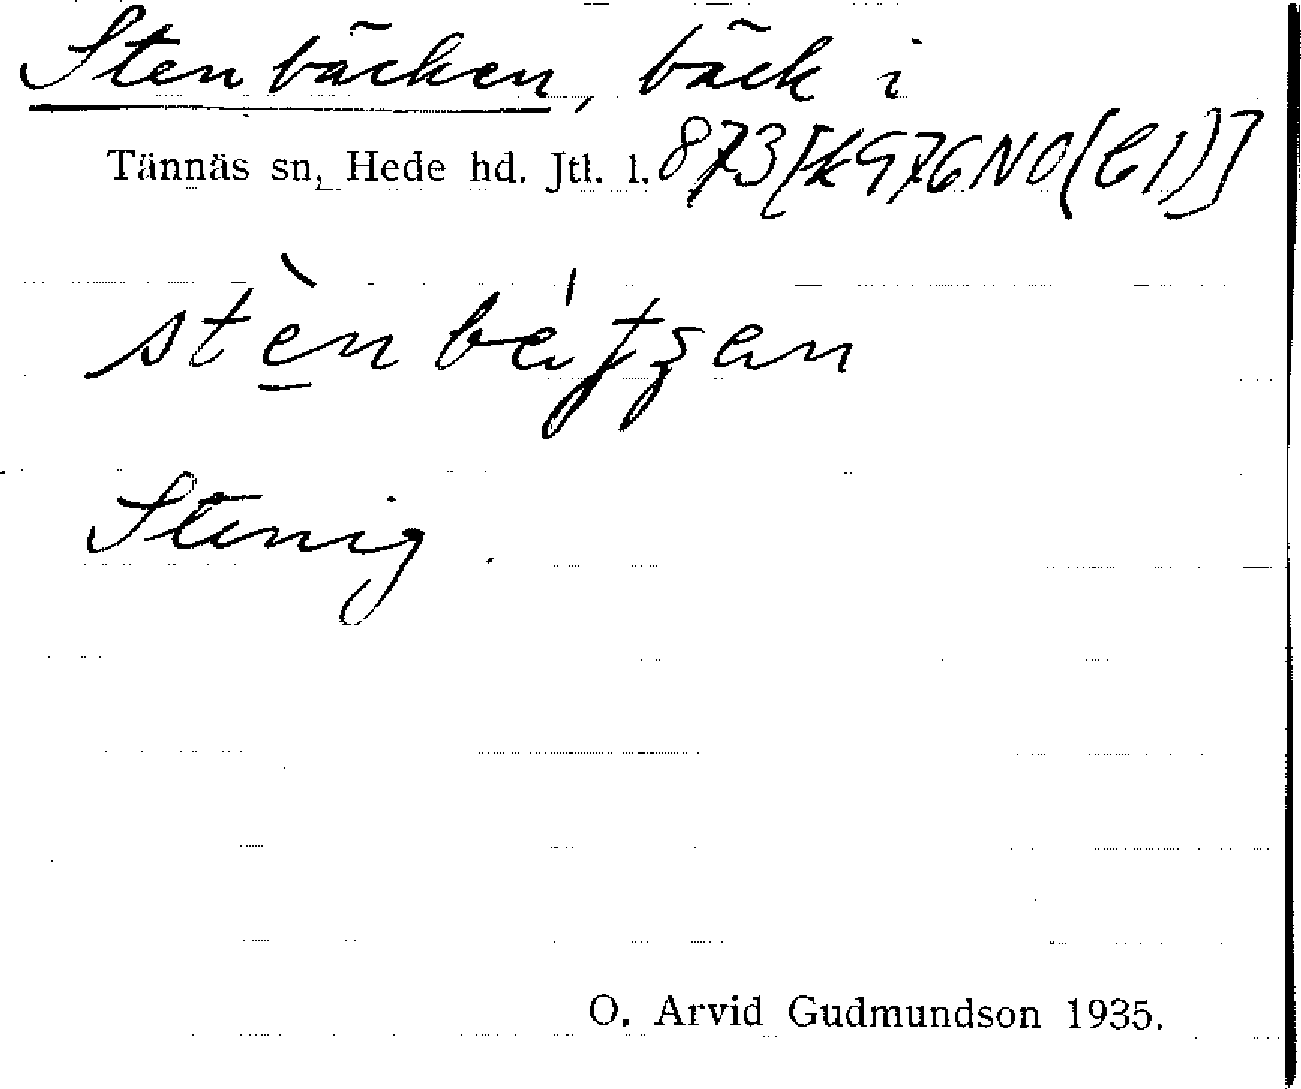 Stenbäcken, bäck i
Tännäs sn, Hede hd. Jtl. l. 873[K976NO(C1)]
Stenig.
O. Arvid Gudmundson 1935.